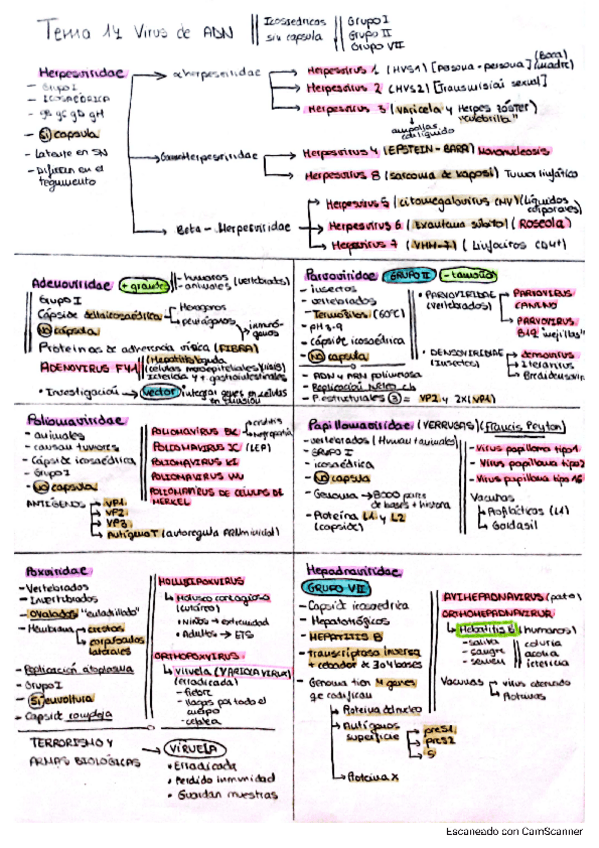 Tema 17 Virus de ADN
Icosaédricos
sin cápsula
Grupo I
Grupo II
Grupo VII
Herpesviridae
- Grupo I
- ICOSAÉDRICA
- gB gC gD gH
- Sí capsula
- Latente en SN
- Difieren en el
tegumento
αherpesviridae
Herpesvirus 1 (HVS1) [Persona-persona] (Boca)
Herpesvirus 2 (HVS2) [Transmisión sexual]
Herpesvirus 3 (Varicela y Herpes ZÓSTER)
"culebrilla"
ampollas
GammaHerpesviridae
Herpesvirus 4 (EPSTEIN-BARR) Mononucleosis
Herpesvirus 8 (sarcoma de Kaposi) Tumor linfático
Beta-Herpesviridae
Herpesvirus 5 (citomegalovirus CMV) (Líquidos
corporales)
Herpesvirus 6 (Exantema súbito) (Roseola)
Herpesvirus 7 (VHH-7) (Linfocitos CD4+)
Adenoviridae + grande
- humanos
- animales (vertebrados)
Grupo I
Cápside icosaédrica
Hexágonos
pentágonos
NO cápsula
Proteínas de adherencia vírica (FIBRA)
ADENOVIRUS
(Hepatitis aguda
• Investigación vector integra genes en células
Parvoviridae GRUPO II - tamaño
- insectos
- vertebrados
- Termófilos (60ºC)
- pH 3-9
- cápside icosaédrica
- NO capsula
- P. estructurales 3 = VP2 y 2X(VP1)
• PARVOVIRIDAE
(vertebrados)
PARVOVIRUS
CANINO
PARVOVIRUS
B19 "mejillas"
• DENSOVIRIDAE
(insectos)
densovirus
Iteravirus
Brevidensovirus
Poliomaviridae
- animales
- causan tumores
- Cápside icosaédrica
- Grupo I
- NO capsula
ANTÍGENOS
VP1
VP2
VP3
Antígeno T
POLIOMAVIRUS BK
cistitis
nefropatía
POLIOMAVIRUS JC (LEP)
POLIOMAVIRUS KI
POLIOMAVIRUS WU
POLIOMAVIRUS DE CÉLULAS DE
MERKEL
Papillomaviridae (VERRUGAS) (Francis Peyton)
- vertebrados (Human + animales)
- GRUPO I
- icosaédrica
- NO capsula
- Genoma 8000 pares
de bases + histona
- Proteína L1 y L2
(capside)
- Virus papiloma tipo 1
- Virus papiloma tipo 2
- Virus papiloma tipo 16
Vacunas
Profilácticas (L1)
Gardasil
Poxviridae
- Vertebrados
- Invertebrados
- Ovalados "enladrillado"
- Membrana
crestas
corpúsculos
laterales
- Replicación citoplasma
- Grupo I
- Sí envoltura
- Capside compleja
MOLLUSCIPOXVIRUS
Molusco contagioso
(cutáneo)
• Niños → extremidad
• Adultos → ETS
ORTHOPOXVIRUS
viruela (VARIOLA VIRUS)
(erradicada)
- fiebre
- llagas por todo el
cuerpo
- cefalea
TERRORISMO Y
ARMAS BIOLÓGICAS
VIRUELA
• Erradicada
• Perdido inmunidad
• Guardan muestras
Hepadnaviridae
GRUPO VII
- Capside icosaédrica
- Hepatológicos
- HEPATITIS B
- transcriptasa inversa
- Genoma tien 4 genes
q codifican
Proteína del núcleo
Antígenos
superficie
preS1
preS2
S
Proteína X
AVIHEPADNAVIRUS (pato)
ORTHOHEPADNAVIRUR
Hepatitis B (humanos)
- saliva
- sangre
- semen
coluria
acolia
ictericia
Vacunas
virus atenuado
Proteínas
Escaneado con CamScanner